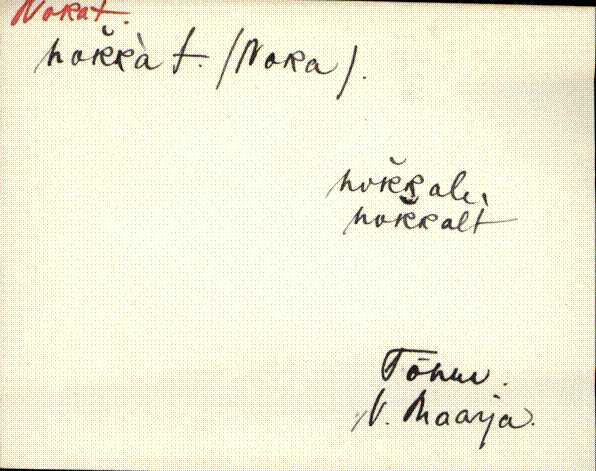 Nokat.
nok̆kàt. (Noka).
nok̆kale,
nok̆kalt
Tõnuv.
V. Maarja.